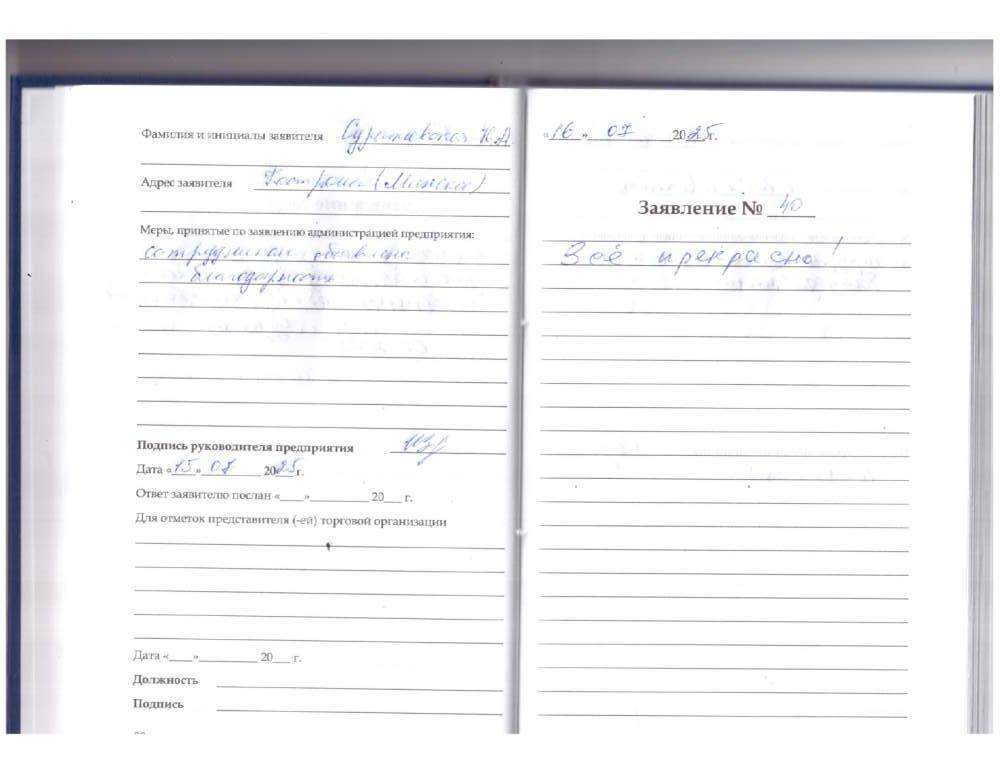 Фамилия и инициалы заявителя Н.А
Адрес заявителя Кострома (
Меры, принятые по заявлению администрацией предприятия:
сотрудникам объявлена
благодарность
Подпись руководителя предприятия
Дата «15» 07 2025 г.
Ответ заявителю послан «____»__________ 20___ г.
Для отметок представителя (-ей) торговой организации
Дата «____»__________ 20___ г.
Должность
Подпись
«16» 07 2025г.
Заявление № 40
Всё прекрасно!